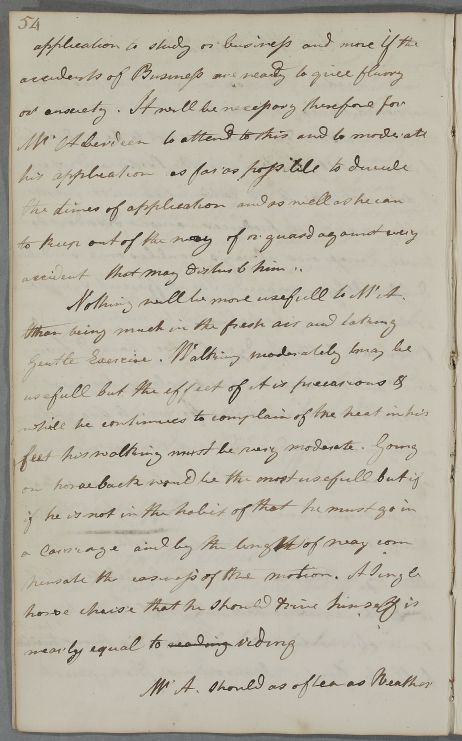 54
application to study or business and more if the
accidents of Business are ready to give flurry
or anxiety. It will be necessary therefore for
Mr. Aberdeen to attend to this and to moderate
his application as far as possible to divide
the times of application and as well as he can
to keep out of the way of or guard against every
accident that may disturb him..
Nothing will be more usefull to Mr. A.
than being much in the fresh air and taking
Gentle Exercise. Walking moderately may be
usefull but the effect of it is precarious &
while he continues to complain of the heat in his
feet his walking must be very moderate. Going
on horseback would be the most usefull but if
if he is not in the habit of that he must go in
a carriage and by the length of way com
pensate the easiness of the motion. A Single
horse chaise that he should drive himself is
nearly equal to reading riding
Mr. A. should as often as Weather